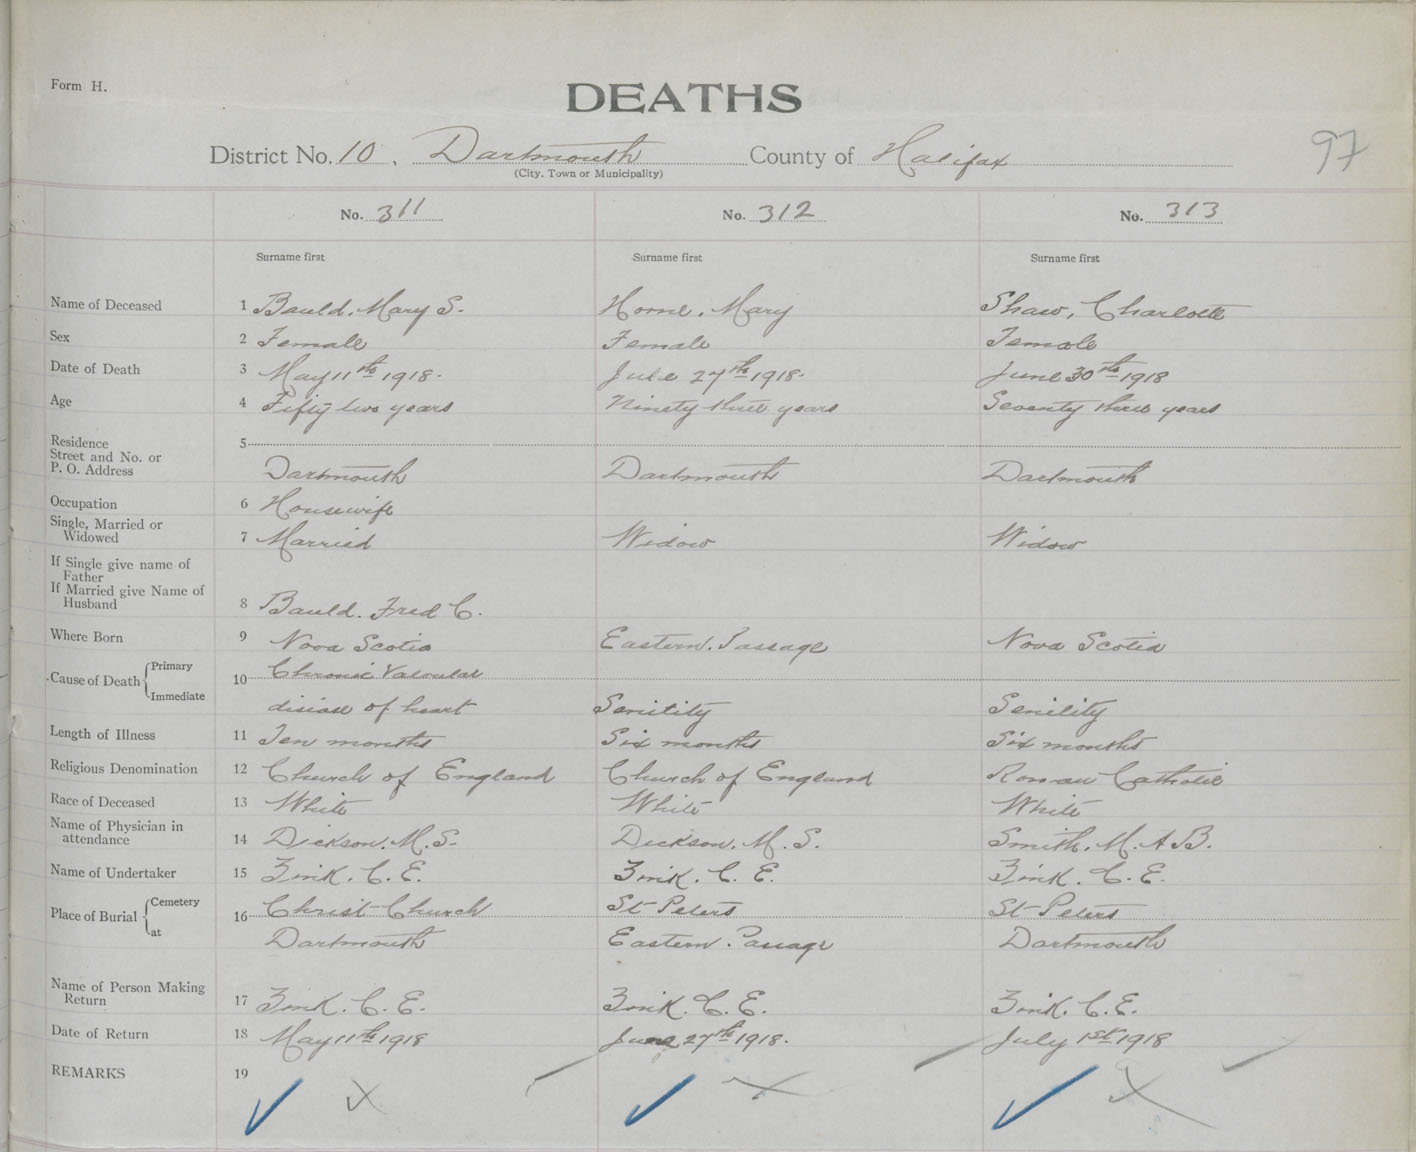 Form H.
DEATHS
District No. 10, Dartmouth County of Halifax
(City, Town or Municipality)
97
No. 311 No. 312 No. 313
Surname first Surname first Surname first
Name of Deceased 1 Bauld, Mary S. Horne, Mary Shaw, Charlotte
Sex 2 Female Female Female
Date of Death 3 May 11th 1918. June 27th 1918. June 30th 1918
Age 4 Fifty two years Ninety three years Seventy three years
Residence 5
Street and No. or
P. O. Address Dartmouth Dartmouth Dartmouth
Occupation 6 Housewife
Single, Married or
Widowed 7 Married Widow Widow
If Single give name of
Father
If Married give Name of
Husband 8 Bauld. Fred C.
Where Born 9 Nova Scotia Eastern. Passage Nova Scotia
Cause of Death Primary 10 Chronic Valvular
Immediate disease of heart Senility Senility
Length of Illness 11 Ten months Six months Six months
Religious Denomination 12 Church of England Church of England Roman Catholic
Race of Deceased 13 White White White
Name of Physician in
attendance 14 Dickson. M. S. Dickson. M. S. Smith. M. A B.
Name of Undertaker 15 Zink. C. E. Zink. C. E. Zink. C. E.
Place of Burial Cemetery 16 Christ Church St Peters St Peters
at Dartmouth Eastern. Passage Dartmouth
Name of Person Making
Return 17 Zink. C. E. Zink. C. E. Zink. C. E.
Date of Return 18 May 11th 1918 June 27th 1918. July 1st 1918
REMARKS 19